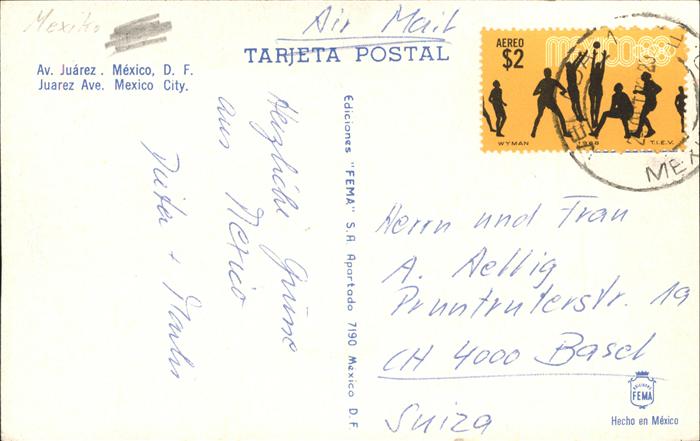 Mexiko
Air Mail
TARJETA POSTAL
Av. Juárez . México, D. F.
Juarez Ave. Mexico City.
AEREO
$2
MEXICO68
WYMAN 1968 T.I.E.V.
MEX
Herzliche Grüsse
aus
Mexico
Dieter +
Ediciones "FEMA" S. A. Apartado 7190 Mexico D. F.
Herrn und Frau
A. Aellig
Pruntruterstr. 19
CH 4000 Basel
Suiza
EDICIONES
FEMA
Hecho en México